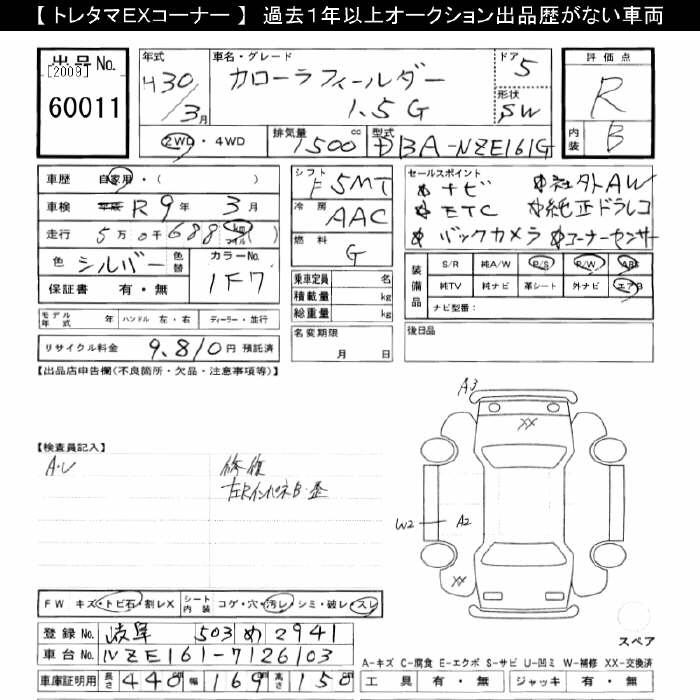 【 トレタマEXコーナー 】 過去１年以上オークション出品歴がない車両
出品No.
[2009]
60011
年式
H30/3月
車名・グレード
カローラフィールダー
1.5G
ドア
5
形状
SW
2WD・4WD
排気量
1500cc
型式
DBA-NZE161G
評価点
R
内装
B
車歴 自家用・( )
車検 R9年3月
走行 5万0千688 km マイル
色 シルバー 色替
カラーNo.
1F7
保証書 有・無
シフト
F5MT
冷房
AAC
燃料
G
セールスポイント
ナビ 社外AW
ETC 純正ドラレコ
バックカメラ コーナーセンサー
乗車定員 名
積載量 kg
総重量 kg
装備品
S/R 純A/W P/S P/W ABS
純TV 純ナビ 革シート 外ナビ エアB
ナビ型番：
モデル年式 年 ハンドル 左・右 ディーラー・並行
リサイクル料金 9,810円 預託済
名変期限
月 日
後日品
【出品店申告欄(不良箇所・欠品・注意事項等)】
【検査員記入】
A・U
修復
A3
XX
W2
A2
XX
FW キズ・トビ石・割レX
シート内装 コゲ・穴・汚レ・シミ・破レ・スレ
スペア
登録No. 岐阜 503 め 2941
車台No. NZE161-7126103
車庫証明用 長さ 440 幅 169 高さ 150
A-キズ C-腐食 E-エクボ S-サビ U-凹ミ W-補修 XX-交換済
工具 有・無 ジャッキ 有・無